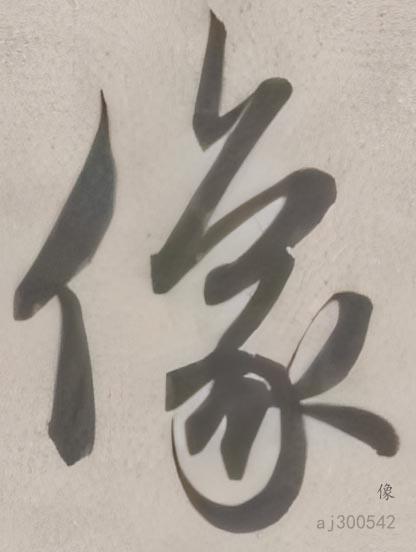 像
像
aj300542